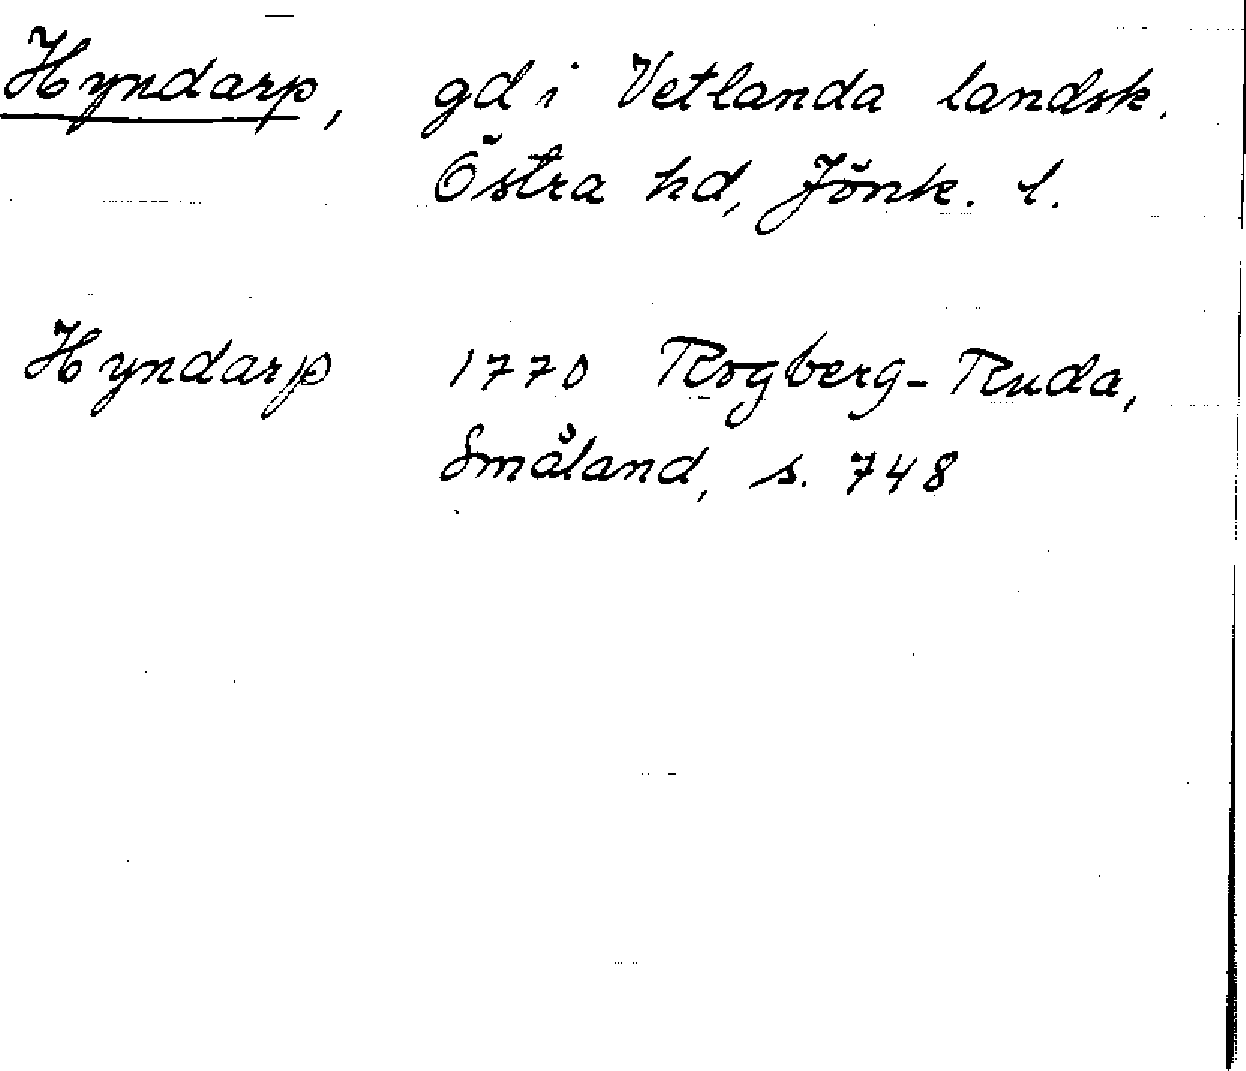 Hyndarp, gd i Vetlanda landsk.
Östra hd, Jönk. l.
Hyndarp 1770 Rogberg-Ruda,
Småland, s. 748